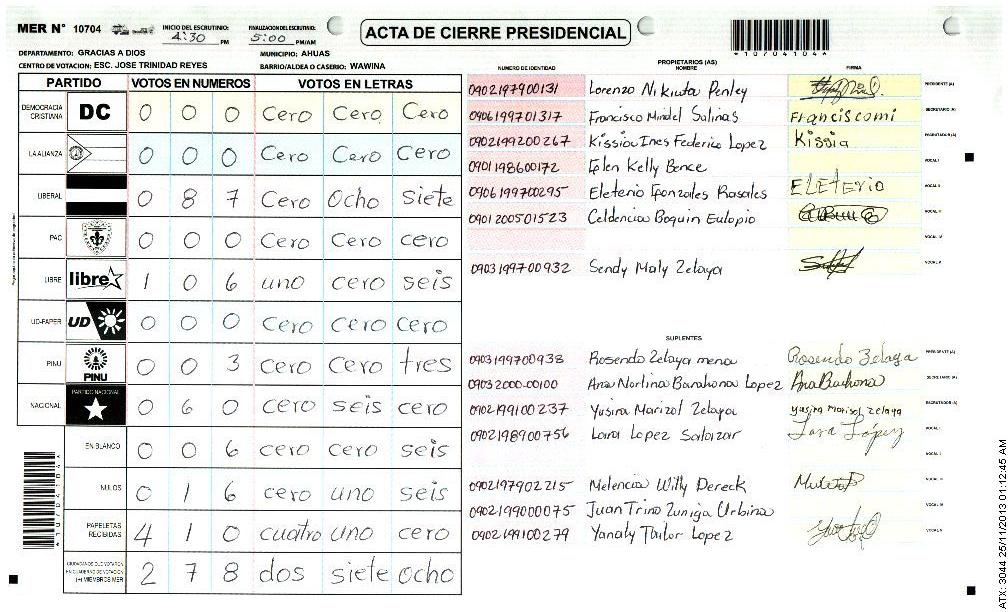 MER N° 10704 INICIO DEL ESCRUTINIO: 4:30 PM FINALIZACION DEL ESCRUTINIO: 5:00 PM/AM
ACTA DE CIERRE PRESIDENCIAL
*10704104*
DEPARTAMENTO: GRACIAS A DIOS MUNICIPIO: AHUAS
CENTRO DE VOTACION: ESC. JOSE TRINIDAD REYES BARRIO/ALDEA O CASERIO: WAWINA
PARTIDO VOTOS EN NUMEROS VOTOS EN LETRAS
DEMOCRACIA CRISTIANA DC 0 0 0 Cero Cero Cero
LA ALIANZA 0 0 0 Cero Cero Cero
LIBERAL 0 8 7 Cero Ocho siete
PAC 0 0 0 Cero Cero cero
LIBRE libre 1 0 6 uno cero seis
UD-FAPER UD 0 0 0 cero cero cero
PINU PINU 0 0 3 cero Cero tres
NACIONAL PARTIDO NACIONAL 0 6 0 cero seis cero
EN BLANCO 0 0 6 cero cero seis
NULOS 0 1 6 cero uno seis
PAPELETAS RECIBIDAS 4 1 0 cuatro uno cero
CIUDADANOS QUE VOTARON EN CUADERNO DE VOTACION (+) MIEMBROS MER 2 7 8 dos siete ocho
PROPIETARIOS (AS)
NUMERO DE IDENTIDAD NOMBRE FIRMA
0902197900131 Lorenzo Nikuta Penley PRESIDENTE (A)
0906199701317 Francisco Mindel Salinas Franciscomi SECRETARIO (A)
0902199200267 Kissia Ines Federico Lopez Kissia ESCRUTADOR (A)
0901198600172 Kelly Bence VOCAL I
0906199700295 Eleterio Gonzales Rosales ELETERIO VOCAL II
0901200501523 Celdencia Boquin Eulopio VOCAL III
VOCAL IV
0903199700932 Sendy Maly Zelaya VOCAL V
SUPLENTES
0903199700938 Rosendo Zelaya mena Rosendo Zelaya PRESIDENTE (A)
09032000-00100 Ana Nortina Barahona Lopez Ana Barahona SECRETARIO (A)
0902199100237 Yusira Marizol Zelaya yusira Marisol Zelaya ESCRUTADOR (A)
0902198900756 Lara Lopez Salazar Lara López VOCAL I
VOCAL II
0902197902215 Melencia Willy Dereck VOCAL III
0902199000075 Juan Trino Zuniga Urbina VOCAL IV
0902199100279 Yanaly Lopez VOCAL V
ATX: 3044 25/11/2013 01:12:45 AM